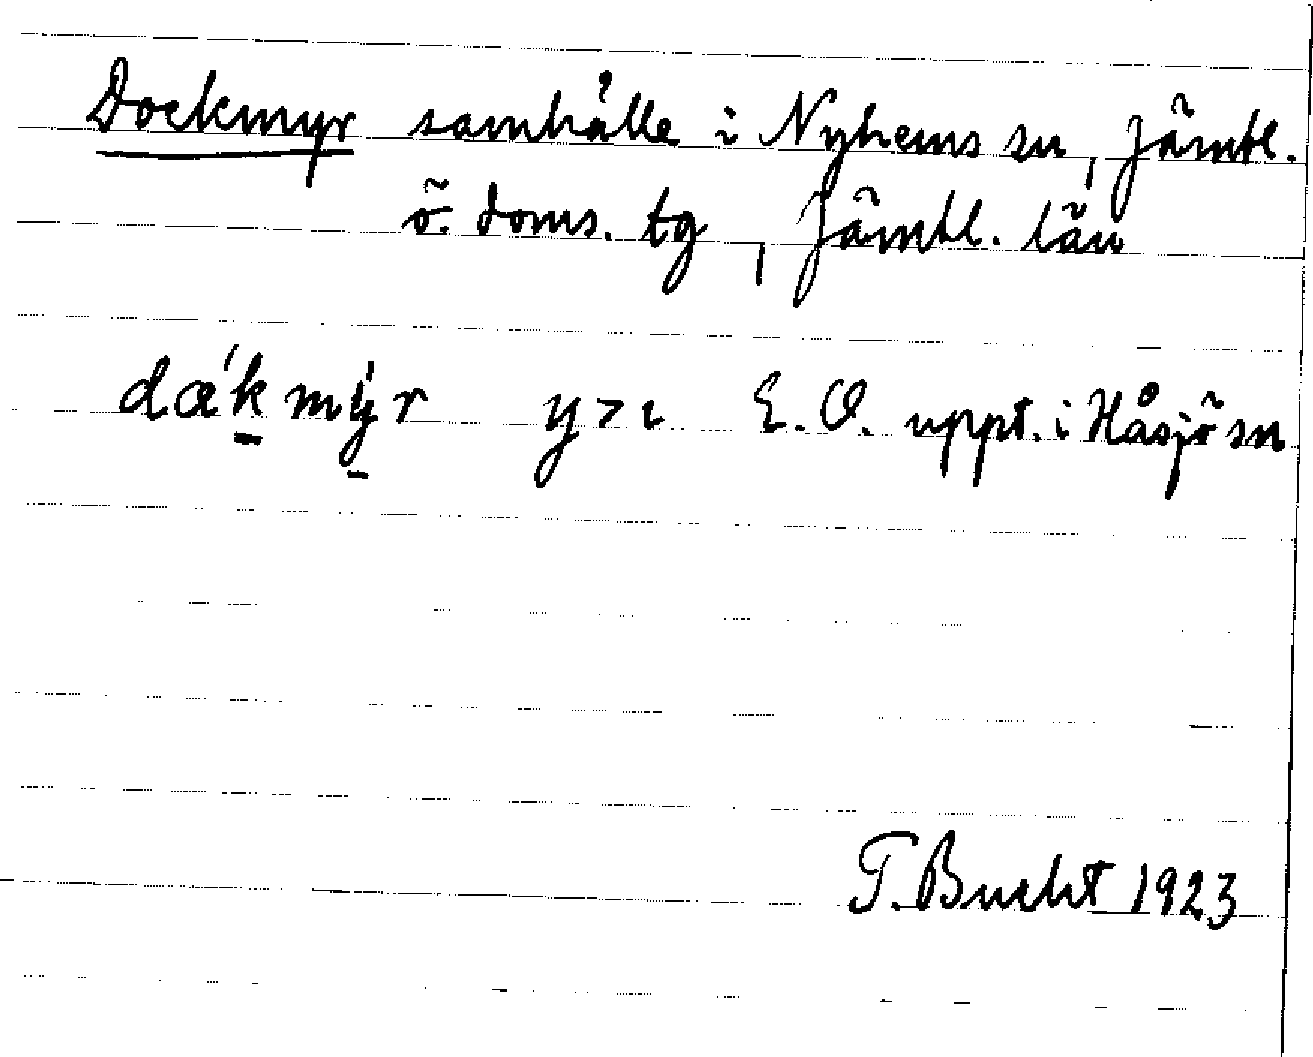 Dockmyr samhälle i Nyhems sn, Jämtl.
ö. doms. tg, Jämtl. län
dæ´k̠ mý̠r y > ı E. O. uppt. i Håsjö sn
T. Bucht 1923